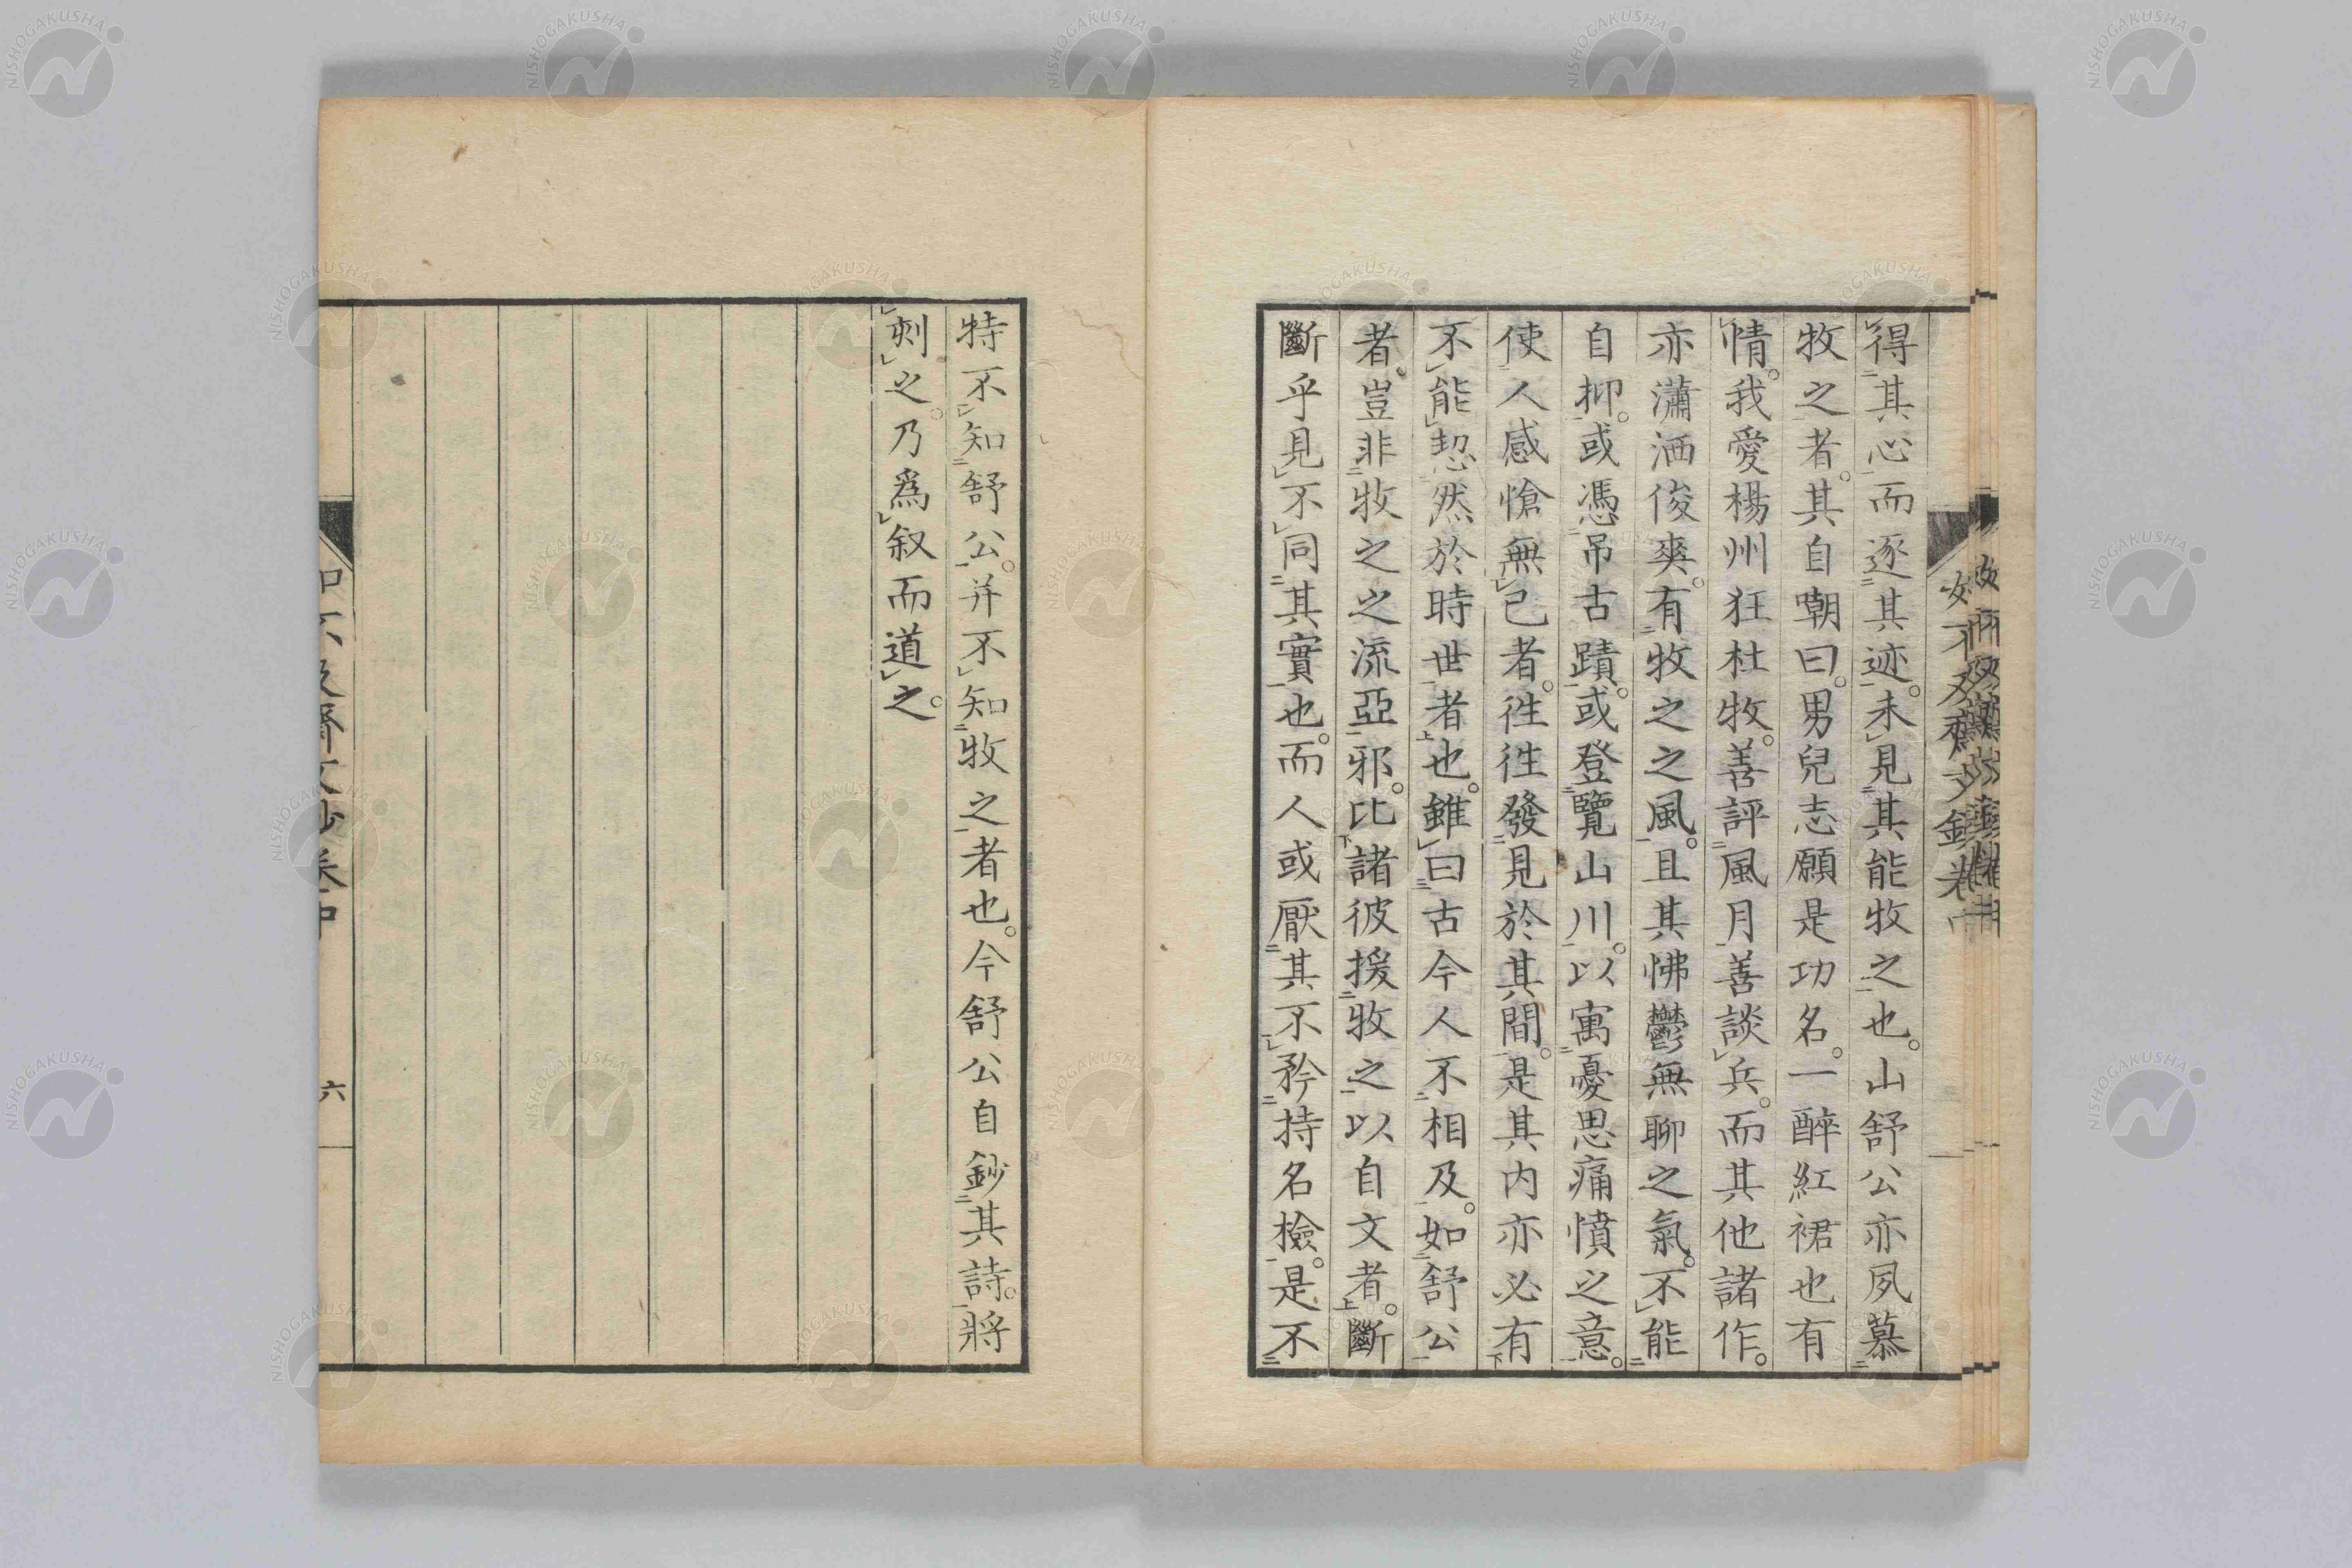 得其心而逐其迹。未見其能牧之也。山舒公亦夙慕
牧之者。其自嘲曰。男兒志願是功名。一醉紅裙也有
情。我愛楊州狂杜牧。善評風月善談兵。而其他諸作。
亦瀟洒俊爽。有牧之之風。且其怫鬱無聊之氣。不能
自抑。或憑吊古蹟。或登覽山川。以寓憂思痛憤之意。
使人感愴無已者。徃徃發見於其間。是其内亦必有
不能恝然於時世者也。雖曰古今人不相及。如舒公
者。豈非牧之之流亞邪。比諸彼援牧之以自文者。斷
斷乎見不同其實也。而人或厭其不矜持名檢。是不
特不知舒公。并不知牧之者也。今舒公自鈔其詩。將
刺之。乃爲叙而道之。
如不及齋文鈔卷中
六
NISHOGAKUSHA